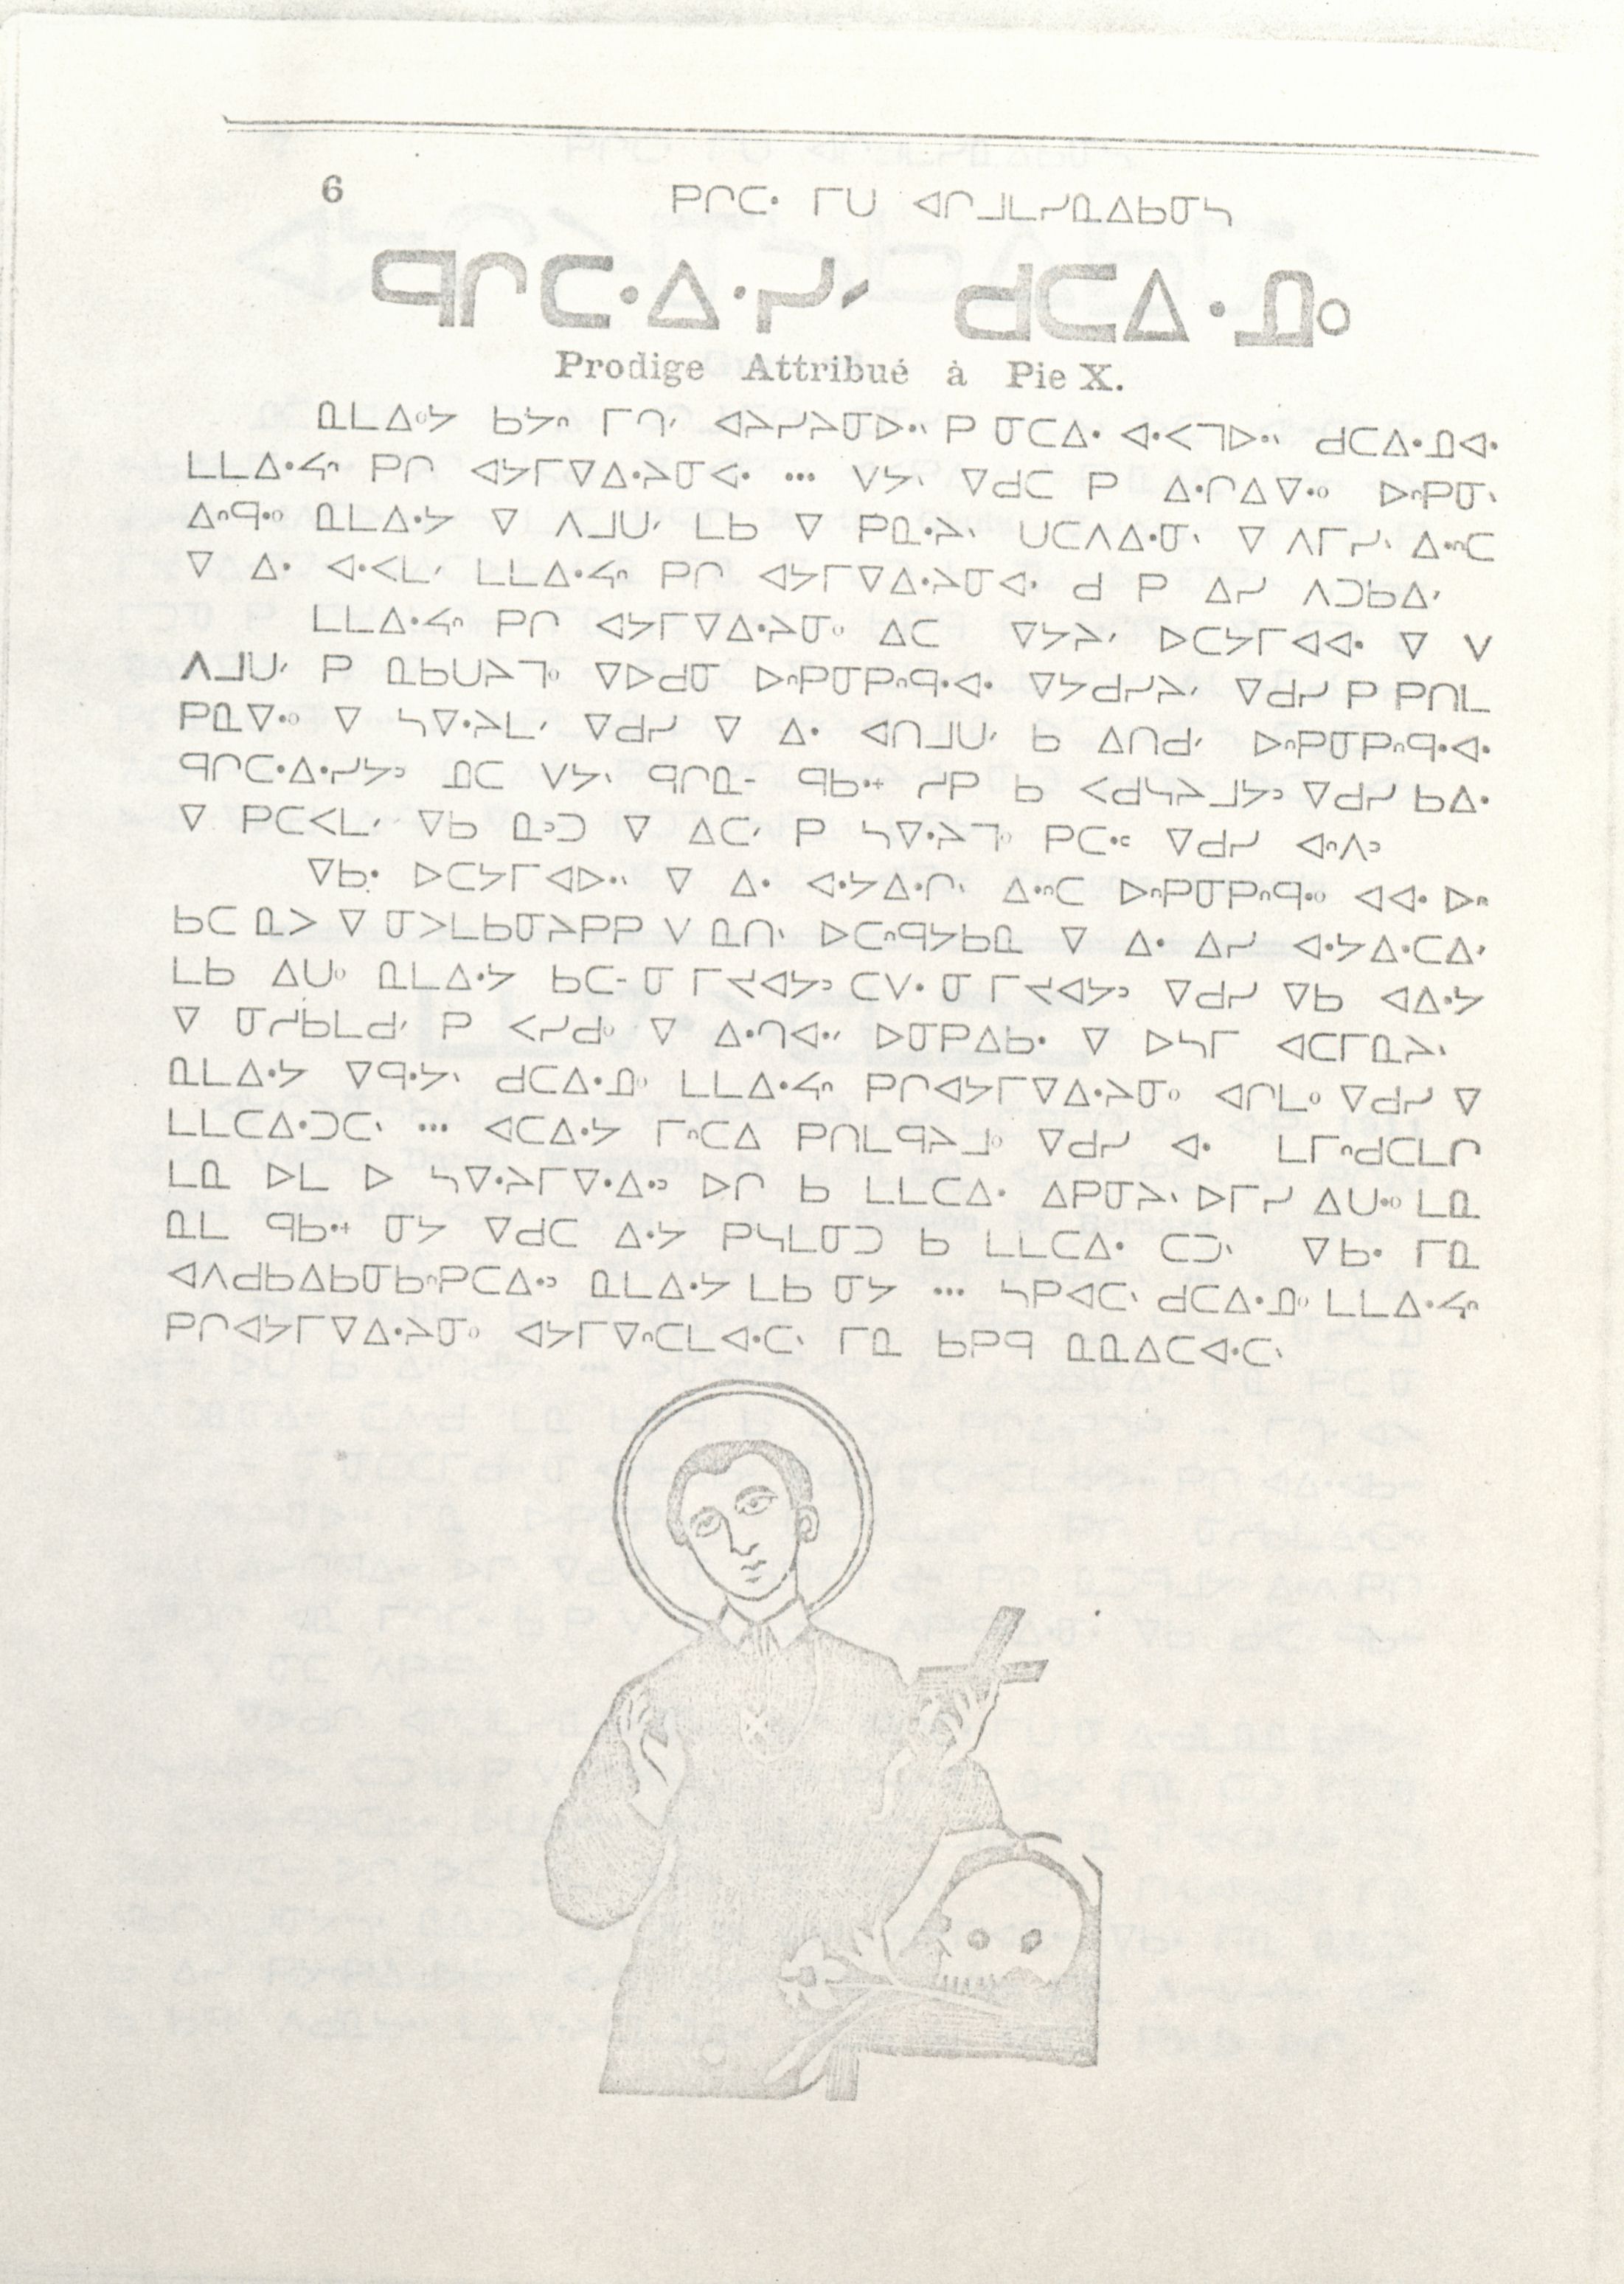 6
ᑭᒋᑕᐧ ᒥᑌ ᐊᒋᒧᒪᓯᓇᐃᑲᓂᔭ
ᑫᒋᑕᐧᐃᐧᓯᐟ ᑯᑕᐃᐧᓄᐤ
Prodige Attribué à Pie X.
ᓇᒪᐃᐧᔭ ᑲᔭᐢ ᒥᒉᐟ ᐊᔨᓯᔨᓂᐅᐧᐠ ᑭ ᓂᑕᐃᐧ ᐊᐧᐸᒣᐅᐧᐠ ᑯᑕᐃᐧᓄᐊᐧ
ᒪᒪᐃᐧᔦᐢ ᑭᒋ ᐊᔭᒥᐁᐃᐧᔨᓂᐊᐧ ... ᐯᔭᐠ ᐁᑯᑕ ᑭ ᐃᐧᒋᐃᐁᐧᐤ ᐅᐢᑭᓂᐠ
ᐃᐢᑫᐧᐤ ᓇᒪᐃᐧᔭ ᐁ ᐱᒧᑌᐟ ᒪᑲ ᐁ ᑭᓇᐧᔨᐠ ᑌᑕᐱᐃᐧᓂᐠ ᐁ ᐱᒥᓯᐠ ᐃᐧᐢᑕ
ᐁ ᐃᐧ ᐊᐧᐸᒪᐟ ᒪᒪᐃᐧᔦᐢ ᑭᒋ ᐊᔭᒥᐁᐃᐧᔨᓂᐊᐧ ᑯ ᑭ ᐃᓯ ᐱᑐᑲᐃᐟ
ᒪᒪᐃᐧᔦᐢ ᑭᒋ ᐊᔭᒥᐁᐃᐧᔨᓂᐤ ᐃᑕ ᐁᔭᔨᐟ ᐅᑕᔭᒥᐊᐊᐧ ᐁ ᐯ
ᐱᒧᑌᐟ ᑭ ᓇᑲᑌᔨᒣᐤ ᐁᐅᑯᓂ ᐅᐢᑭᓂᑭᐢᑫᐧᐊᐧ ᐁᔭᑯᓯᔨᐟ ᐁᑯᓯ ᑭ ᑭᑎᒪ
ᑭᓇᐁᐧᐤ ᐁ ᓴᐁᐧᔨᒪᐟ ᐁᑯᓯ ᐁ ᐃᐧ ᐊᑎᒧᑌᐟ ᑲ ᐃᑎᑯᐟ ᐅᐢᑭᓂᑭᐢᑫᐧᐊᐧ
ᑫᒋᑕᐧᐃᐧᓯᔭᐣ ᓄᑕ ᐯᔭᐠ ᑫᒋᓇ- ᑫᑲᐧᕀ ᓯᑭ ᑲ ᐸᑯᓭᔨᒧᔭᐣ ᐁᑯᓯ ᑲᐃᐧ
ᐁ ᑭᑕᐸᒪᐟ ᐁᑲ ᓇᐣᑐ ᐁ ᐃᑕᐟ ᑭ ᓴᐁᐧᔨᒣᐤ ᑭᑕᐧᒼ ᐁᑯᓯ ᐊᐢᐱᐣ
ᐁᑲᐧ ᐅᑕᔭᒥᐊᐅᐧᐠ ᐁ ᐃᐧ ᐊᐧᔭᐃᐧᒋᐠ ᐃᐧᐢᑕ ᐅᐢᑭᓂᑭᐢᑫᐧᐤ ᐊᐊᐧ ᐅᐢ
ᑲᑕ ᓇᐳ ᐁ ᓂᐳᒪᑲᓂᔨᑭᑭ ᐯ ᓇᑎᐠ ᐅᑕᐢᑫᔭᑲᓇ ᐁ ᐃᐧ ᐃᓯ ᐊᐧᔭᐃᐧᑕᐃᐟ
ᒪᑲ ᐃᑌᐤ ᓇᒪᐃᐧᔭ ᑲᑕ- ᓂ ᒥᔪᐊᔭᐣ ᑕᐯᐧ ᓂ ᒥᔪᐊᔭᐣ ᐁᑯᓯ ᐁᑲ ᐊᐃᐧᔭ
ᐁ ᓂᓯᑲᒪᑯᐟ ᑭ ᐸᓯᑯᐤ ᐁ ᐃᐧᒉᐊᐧᐟ ᐅᓂᑭᐃᑲᐧ ᐁ ᐅᓴᒥ ᐊᑕᒥᓇᔨᐠ
ᓇᒪᐃᐧᔭ ᐁᑫᐧᔭᐠ ᑯᑕᐃᐧᓄᐤ ᒪᒪᐃᐧᔦᐢ ᑭᒋᐊᔭᒥᐁᐃᐧᔨᓂᐤ ᐊᒋᒪᐤ ᐁᑯᓯ ᐁ
ᒪᒪᑕᐃᐧᑐᑕᐠ ... ᐊᑕᐃᐧᔭ ᒥᐢᑕᐃ ᑭᑎᒪᑫᔨᒧᐤ ᐁᑯᓯ ᐊᐧ ᒪᒥᐢᑯᑕᒪᒋ
ᒪᓇ ᐅᒪ ᐅ ᓴᐁᐧᔨᒥᐁᐧᐃᐧᐣ ᐅᒋ ᑲ ᒪᒪᑕᐃᐧ ᐃᑭᓂᔨᐠ ᐅᒥᓯ ᐃᑌᐧᐤ ᒪᓇ
ᓇᒪ ᑫᑲᐧᕀ ᓂᔭ ᐁᑯᑕ ᐃᐧᔭ ᑭᓴᒪᓂᑐ ᑲ ᒪᒪᑕᐃᐧ ᑕᑐᐠ ᐁᑲᐧ ᒥᓇ
ᐊᐱᑯᑲᐃᑲᓂᑲᐢᑭᑕᐃᐧᐣ ᓇᒪᐃᐧᔭ ᒪᑲ ᓂᔭ ... ᓴᑭᐊᑕᐠ ᑯᑕᐃᐧᓄᐤ ᒪᒪᐃᐧᔦᐢ
ᑭᒋᐊᔭᒥᐁᐃᐧᔨᓂᐤ ᐊᔭᒥᐁᐢᑕᒪᐊᐧᑕᐠ ᒥᓇ ᑲᑭᑫ ᓇᓇᐃᑕᐊᐧᑕᐠ